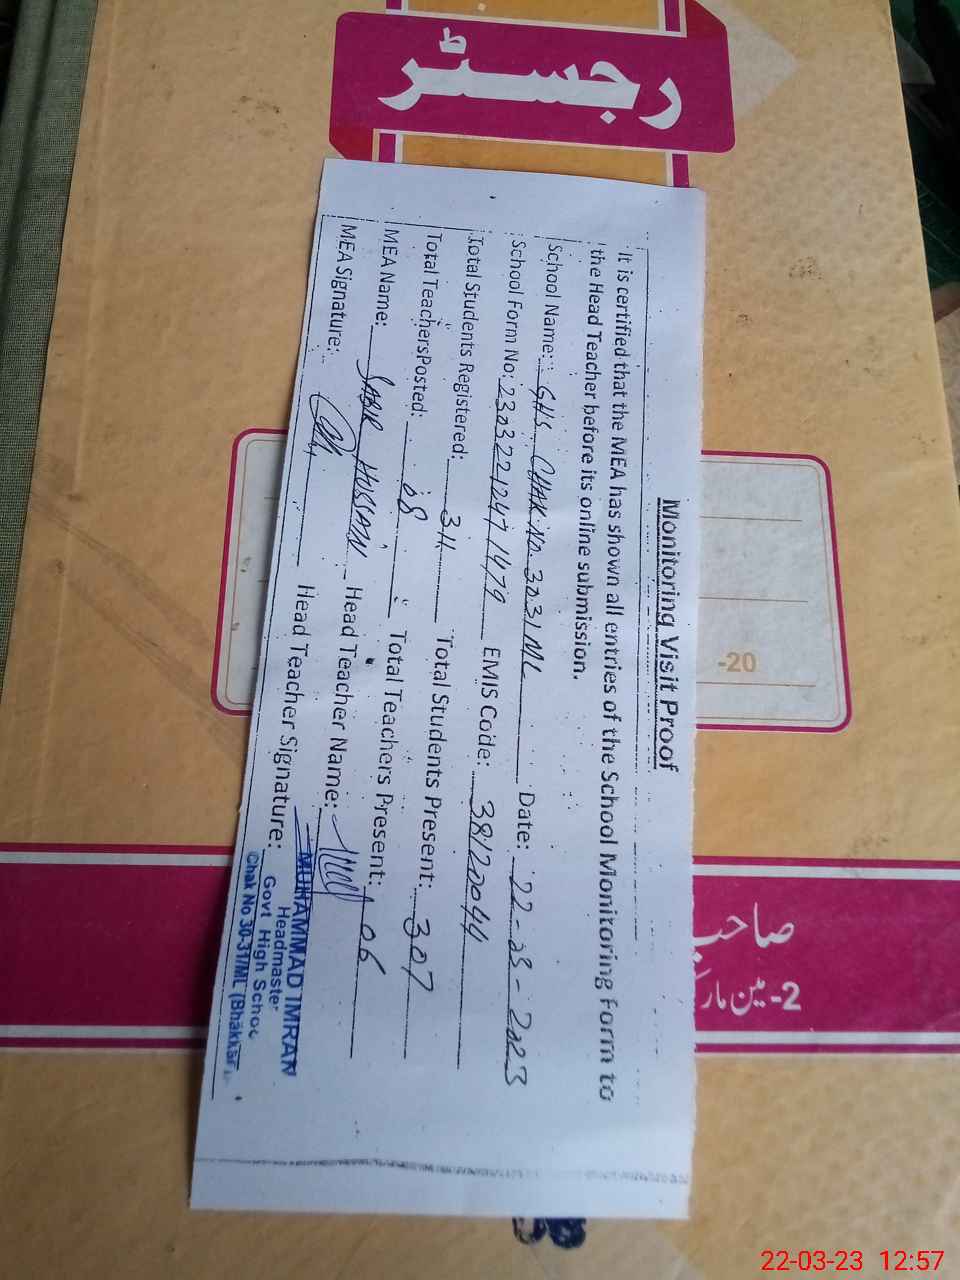 رجسٹر
Monitoring Visit Proof
It is certified that the MEA has shown all entries of the School Monitoring Form to
the Head Teacher before its online submission.
School Name: GHS CHAK No 3031 ML Date: 22-03-2023
School Form No: 2303221247 1479 EMIS Code: 38120044
Total Students Registered: 311 Total Students Present: 307
Total Teachers Posted: 08 Total Teachers Present: 06
MEA Name: SABIR HUSSAIN Head Teacher Name:
MEA Signature: Head Teacher Signature:
MUHAMMAD IMRAN
Headmaster
Govt High Schoo
Chak No 30-31/ML (Bhakkar
-20
صاحب
2-مین مار
22-03-23 12:57